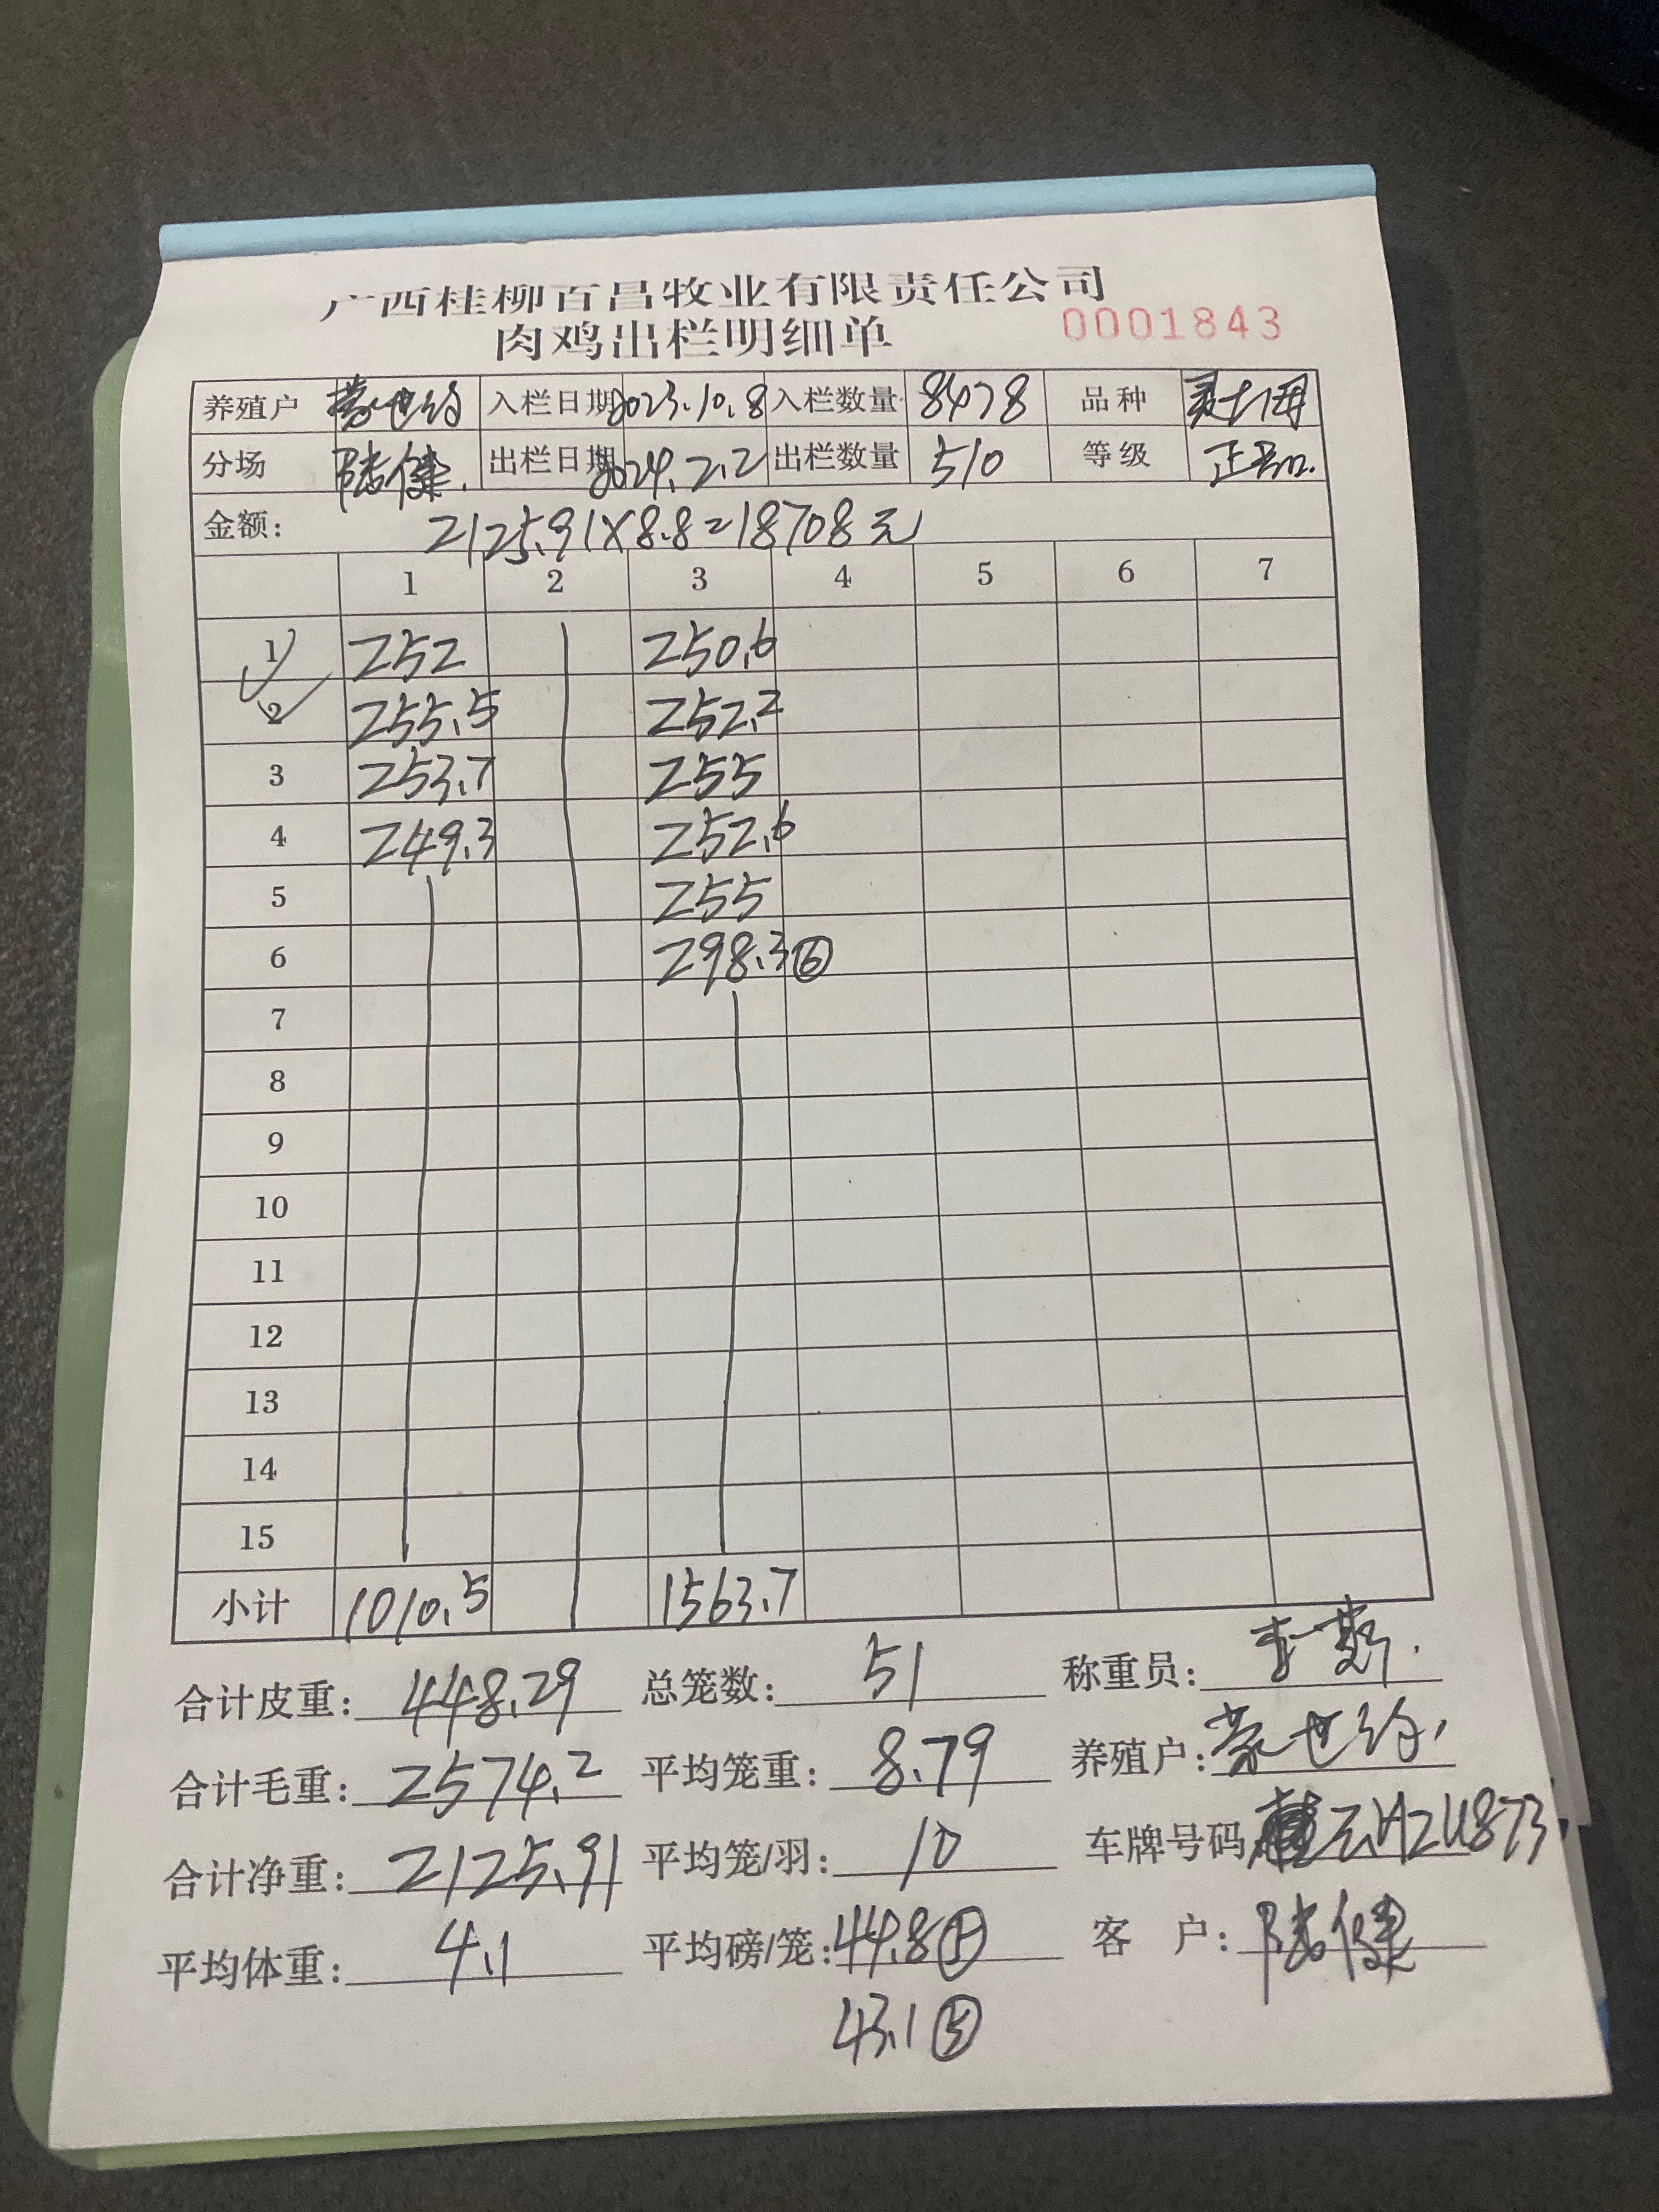 广西桂柳百昌牧业有限责任公司
肉鸡出栏明细单 0001843
养殖户 蒙世 入栏日期 2023.10.8 入栏数量 8478 品种
分场 陆健. 出栏日期 2024.2.2 出栏数量 510 等级 正品.
金额: 2125.91×8.8=18708元
1 2 3 4 5 6 7
1 252 250.6
2 255.5 252.2
3 253.7 255
4 249.3 252.6
5 255
6 298.3⑥
7
8
9
10
11
12
13
14
15
小计 1010.5 1563.7
合计皮重: 448.29 总笼数: 51 称重员:
合计毛重: 2574.2 平均笼重: 8.79 养殖户: 蒙世
合计净重: 2125.91 平均笼/羽: 10 车牌号码
平均体重: 4.1 平均磅/笼: 44.8 客 户: 陆健
43.1